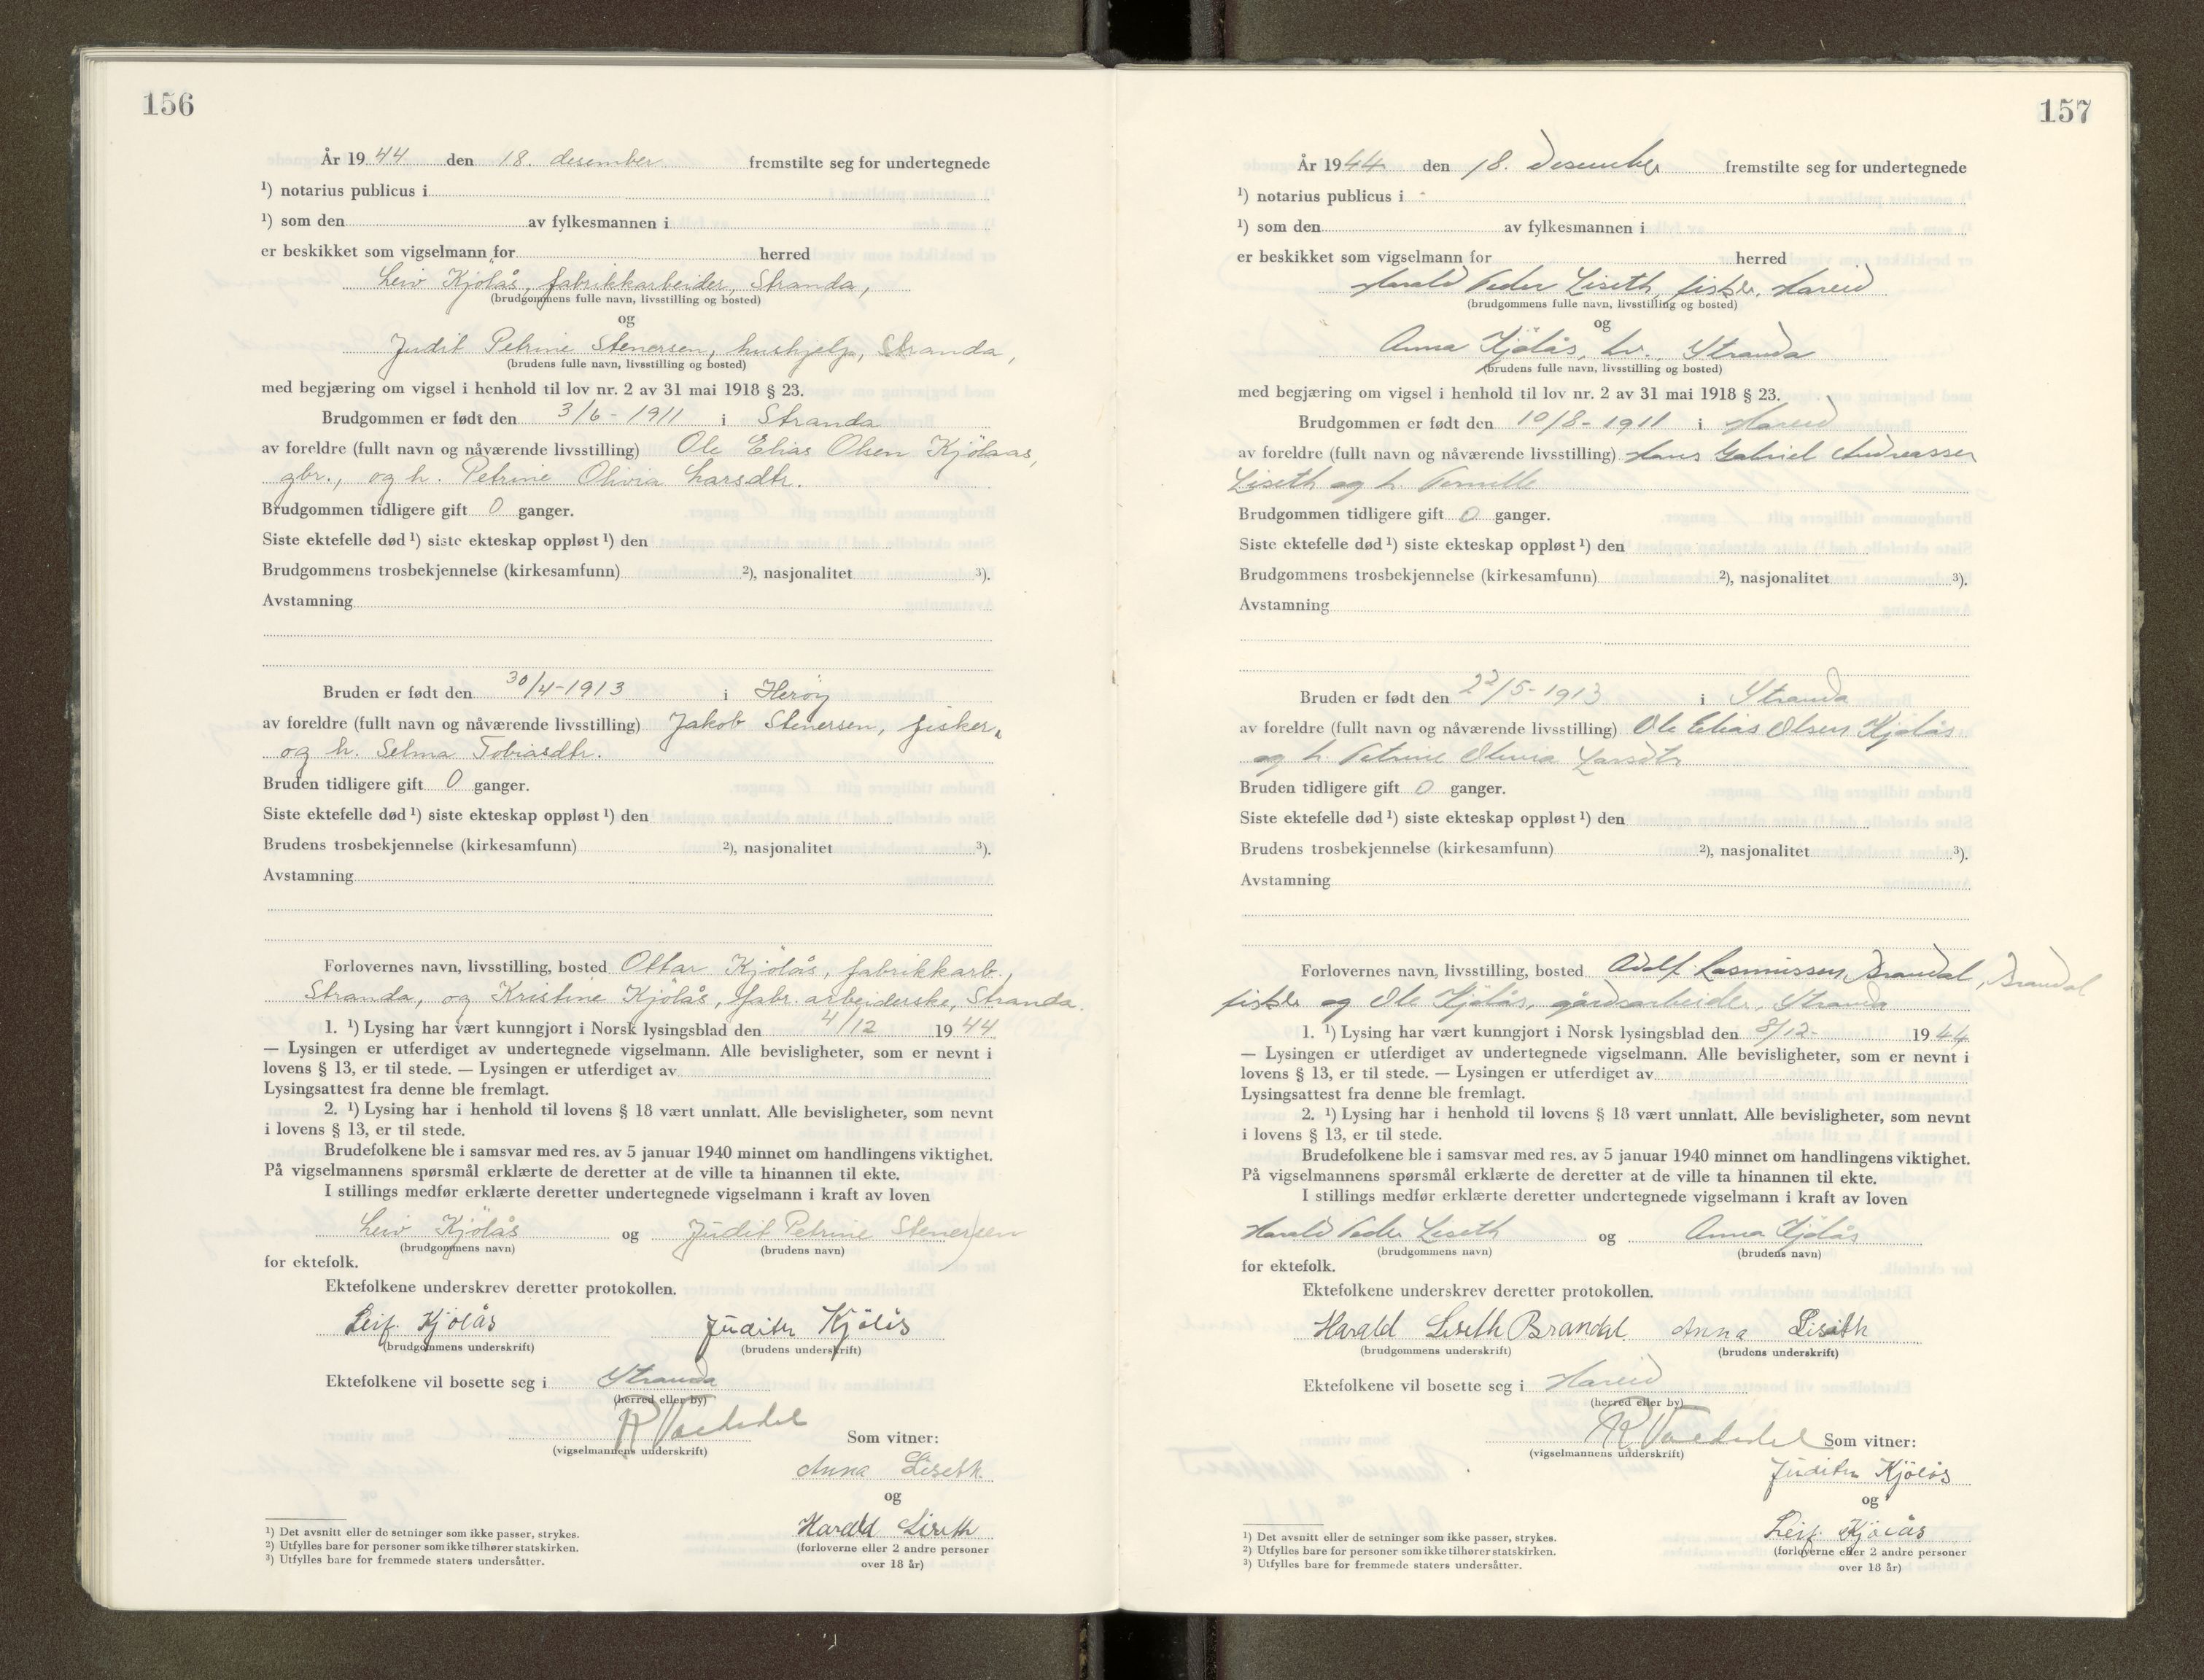 156
År 1944 den 18. desember fremstilte seg for undertegnede
¹) notarius publicus i
¹) som den av fylkesmannen i
er beskikket som vigselmann for herred
Leiv Kjölås, fabrikkarbeider, Stranda,
(brudgommens fulle navn, livsstilling og bosted)
og
Judit Petrine Stenersen, hushjelp, Stranda,
(brudens fulle navn, livsstilling og bosted)
med begjæring om vigsel i henhold til lov nr. 2 av 31 mai 1918 § 23.
Brudgommen er født den 3/6 - 1911 i Stranda
av foreldre (fullt navn og nåværende livsstilling) Ole Elias Olsen Kjölaas,
gbr., og h. Petrine Olivia Larsdtr.
Brudgommen tidligere gift 0 ganger.
Siste ektefelle død ¹) siste ekteskap oppløst ¹) den
Brudgommens trosbekjennelse (kirkesamfunn) ²), nasjonalitet ³).
Avstamning
Bruden er født den 30/4-1913 i Herøy
av foreldre (fullt navn og nåværende livsstilling) Jakob Stenersen, fisker,
og h. Selma Tobiasdtr.
Bruden tidligere gift 0 ganger.
Siste ektefelle død ¹) siste ekteskap oppløst ¹) den
Brudens trosbekjennelse (kirkesamfunn) ²), nasjonalitet ³).
Avstamning
Forlovernes navn, livsstilling, bosted Ottar Kjölås, fabrikkarb.,
Stranda, og Kristine Kjölås, fabr. arbeiderske, Stranda.
1. ¹) Lysing har vært kunngjort i Norsk lysingsblad den 4/12 1944
— Lysingen er utferdiget av undertegnede vigselmann. Alle bevisligheter, som er nevnt i
lovens § 13, er til stede. — Lysingen er utferdiget av
Lysingsattest fra denne ble fremlagt.
2. ¹) Lysing har i henhold til lovens § 18 vært unnlatt. Alle bevisligheter, som nevnt
i lovens § 13, er til stede.
Brudefolkene ble i samsvar med res. av 5 januar 1940 minnet om handlingens viktighet.
På vigselmannens spørsmål erklærte de deretter at de ville ta hinannen til ekte.
I stillings medfør erklærte deretter undertegnede vigselmann i kraft av loven
Leiv Kjölås og Judit Petrine Stenersen
(brudgommens navn) (brudens navn)
for ektefolk.
Ektefolkene underskrev deretter protokollen.
Leif. Kjölås Judith Kjölås
(brudgommens underskrift) (brudens underskrift)
Ektefolkene vil bosette seg i Stranda
(herred eller by)
(vigselmannens underskrift) Som vitner:
Anna Liseth
og
Harald Liseth
(forloverne eller 2 andre personer
over 18 år)
¹) Det avsnitt eller de setninger som ikke passer, strykes.
²) Utfylles bare for personer som ikke tilhører statskirken.
³) Utfylles bare for fremmede staters undersåtter.
157
År 1944 den 18. desember fremstilte seg for undertegnede
¹) notarius publicus i
¹) som den av fylkesmannen i
er beskikket som vigselmann for herred
Harald Peder Liseth, fisker, Hareid
(brudgommens fulle navn, livsstilling og bosted)
og
Anna Kjölås, hv., Stranda
(brudens fulle navn, livsstilling og bosted)
med begjæring om vigsel i henhold til lov nr. 2 av 31 mai 1918 § 23.
Brudgommen er født den 10/8 - 1911 i Hareid
av foreldre (fullt navn og nåværende livsstilling) Hans Gabriel Andreassen
Liseth og h. Pernille
Brudgommen tidligere gift 0 ganger.
Siste ektefelle død ¹) siste ekteskap oppløst ¹) den
Brudgommens trosbekjennelse (kirkesamfunn) ²), nasjonalitet ³).
Avstamning
Bruden er født den 23/5 - 1913 i Stranda
av foreldre (fullt navn og nåværende livsstilling) Ole Elias Olsen Kjölås
og h. Petrine Olivia Larsdtr
Bruden tidligere gift 0 ganger.
Siste ektefelle død ¹) siste ekteskap oppløst ¹) den
Brudens trosbekjennelse (kirkesamfunn) ²), nasjonalitet ³).
Avstamning
Forlovernes navn, livsstilling, bosted Adolf Rasmussen Brandal, Brandal
fisker og Ole Kjölås, gårdsarbeider, Stranda
1. ¹) Lysing har vært kunngjort i Norsk lysingsblad den 8/12- 1944
— Lysingen er utferdiget av undertegnede vigselmann. Alle bevisligheter, som er nevnt i
lovens § 13, er til stede. — Lysingen er utferdiget av
Lysingsattest fra denne ble fremlagt.
2. ¹) Lysing har i henhold til lovens § 18 vært unnlatt. Alle bevisligheter, som nevnt
i lovens § 13, er til stede.
Brudefolkene ble i samsvar med res. av 5 januar 1940 minnet om handlingens viktighet.
På vigselmannens spørsmål erklærte de deretter at de ville ta hinannen til ekte.
I stillings medfør erklærte deretter undertegnede vigselmann i kraft av loven
Harald Peder Liseth og Anna Kjölås
(brudgommens navn) (brudens navn)
for ektefolk.
Ektefolkene underskrev deretter protokollen.
Harald Liseth Brandal Anna Liseth
(brudgommens underskrift) (brudens underskrift)
Ektefolkene vil bosette seg i Hareid
(herred eller by)
(vigselmannens underskrift) Som vitner:
Judith Kjölås
og
Leif. Kjölås
(forloverne eller 2 andre personer
over 18 år)
¹) Det avsnitt eller de setninger som ikke passer, strykes.
²) Utfylles bare for personer som ikke tilhører statskirken.
³) Utfylles bare for fremmede staters undersåtter.